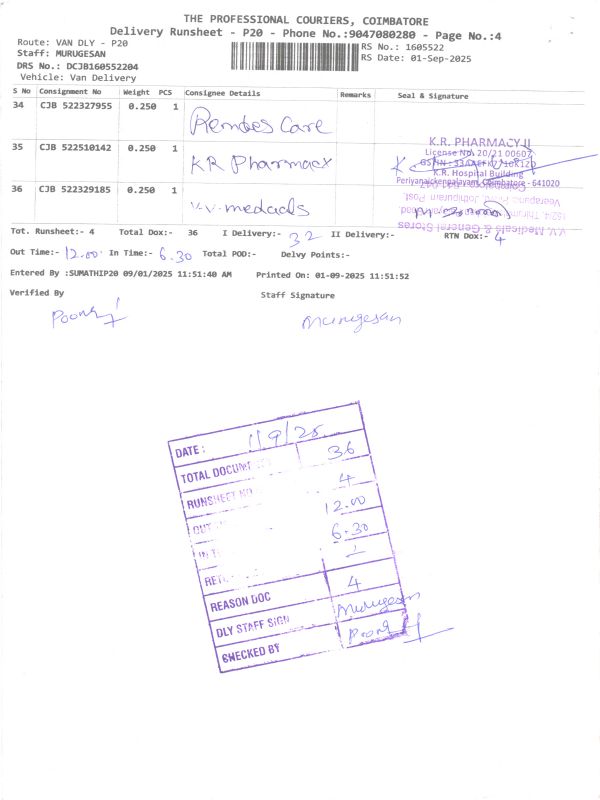 THE PROFESSIONAL COURIERS, COIMBATORE
Delivery Runsheet - P20 - Phone No.:9047080280 - Page No.:4
Route: VAN DLY - P20
RS No.: 1605522
Staff: MURUGESAN
RS Date: 01-Sep-2025
DRS No.: DCJB160552204
Vehicle: Van Delivery
S No Consignment No Weight PCS Consignee Details Remarks Seal & Signature
34 CJB 522327955 0.250 1
Care
35 CJB 522510142 0.250 1 KR Pharmacy
K.R. PHARMACY II
License No. 20/21 00607
K.R. Hospital Building
Periyanaickenpalayam, Coimbatore - 641020
36 CJB 522329185 0.250 1 V.V. medicals
V.V. Medicals & General Stores
Tot. Runsheet:- 4 Total Dox:- 36 I Delivery:- 32 II Delivery:- RTN Dox:- 4
Out Time:- 12.00 In Time:- 6.30 Total POD:- Delvy Points:-
Entered By :SUMATHIP20 09/01/2025 11:51:40 AM Printed On: 01-09-2025 11:51:52
Verified By Staff Signature
Murugesan
DATE : 1/9/25
TOTAL DOCUMENT 36
RUNSHEET NO 4
OUT 12.00
IN T 6.30
RET
REASON DOC 4
DLY STAFF SIGN Murugesan
CHECKED BY